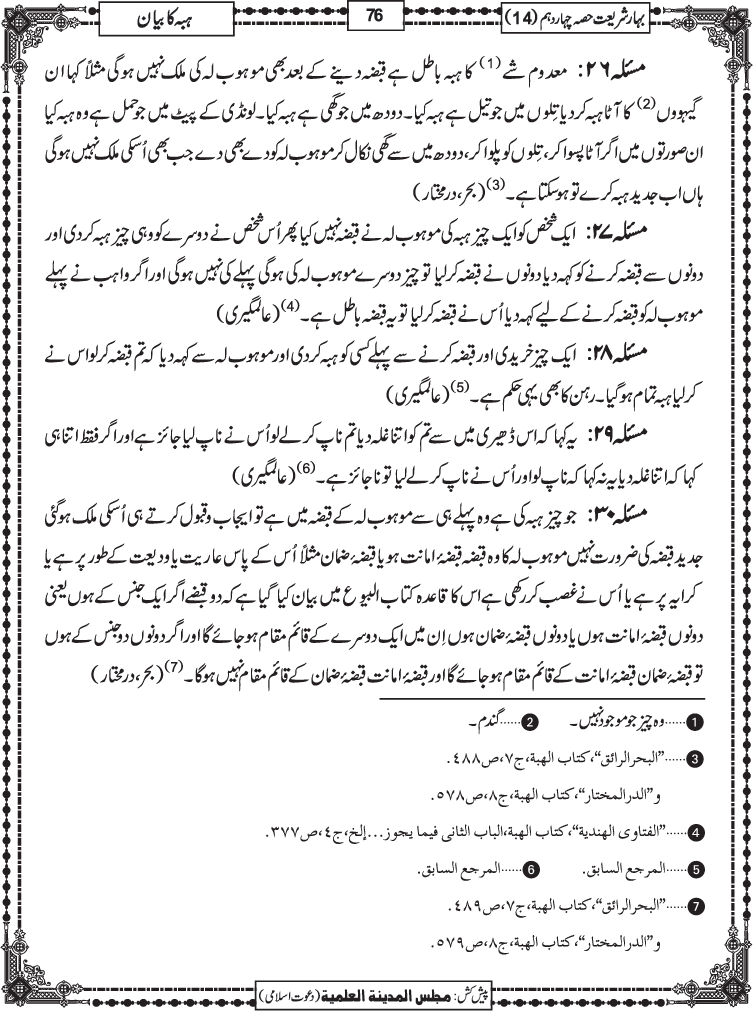 بہارِشریعت حصہ چہاردہم (14)
76
ہبہ کا بیان
مسئلہ ۲۶: معدوم شے (1) کا ہبہ باطل ہے قبضہ دینے کے بعد بھی موہوب لہ کی ملک نہیں ہوگی مثلاً کہا ان
گیہووں (2) کا آٹا ہبہ کردیا تِلوں میں جو تیل ہے ہبہ کیا۔ دودھ میں جو گھی ہے ہبہ کیا۔ لونڈی کے پیٹ میں جو حمل ہے وہ ہبہ کیا
ان صورتوں میں اگر آٹا پسوا کر، تِلوں کو پلوا کر، دودھ میں سے گھی نکال کر موہوب لہ کو دے بھی دے جب بھی اُسکی ملک نہیں ہوگی
ہاں اب جدید ہبہ کرے تو ہوسکتا ہے۔ (3) (بحر، درمختار)
مسئلہ ۲۷: ایک شخص کو ایک چیز ہبہ کی موہوب لہ نے قبضہ نہیں کیا پھر اُس شخص نے دوسرے کو وہی چیز ہبہ کردی اور
دونوں سے قبضہ کرنے کو کہہ دیا دونوں نے قبضہ کرلیا تو چیز دوسرے موہوب لہ کی ہوگی پہلے کی نہیں ہوگی اور اگر واہب نے پہلے
موہوب لہ کو قبضہ کرنے کے لیے کہہ دیا اُس نے قبضہ کرلیا تو یہ قبضہ باطل ہے۔ (4) (عالمگیری)
مسئلہ ۲۸: ایک چیز خریدی اور قبضہ کرنے سے پہلے کسی کو ہبہ کردی اور موہوب لہ سے کہہ دیا کہ تم قبضہ کرلو اس نے
کرلیا ہبہ تمام ہوگیا۔ رہن کا بھی یہی حکم ہے۔ (5) (عالمگیری)
مسئلہ ۲۹: یہ کہا کہ اس ڈھیری میں سے تم کو اتنا غلہ دیا تم ناپ کر لے لو اُس نے ناپ لیا جائز ہے اور اگر فقط اتنا ہی
کہا کہ اتنا غلہ دیا یہ نہ کہا کہ ناپ لو اور اُس نے ناپ کر لے لیا تو ناجائز ہے۔ (6) (عالمگیری)
مسئلہ ۳۰: جو چیز ہبہ کی ہے وہ پہلے ہی سے موہوب لہ کے قبضہ میں ہے تو ایجاب وقبول کرتے ہی اُسکی ملک ہوگئی
جدید قبضہ کی ضرورت نہیں موہوب لہ کا وہ قبضہ قبضۂ امانت ہو یا قبضۂ ضمان مثلاً اُس کے پاس عاریت یا ودیعت کے طور پر ہے یا
کرایہ پر ہے یا اُس نے غصب کر رکھی ہے اس کا قاعدہ کتاب البیوع میں بیان کیا گیا ہے کہ دو قبضے اگر ایک جنس کے ہوں یعنی
دونوں قبضۂ امانت ہوں یا دونوں قبضۂ ضمان ہوں اِن میں ایک دوسرے کے قائم مقام ہوجائے گا اور اگر دونوں دو جنس کے ہوں
تو قبضۂ ضمان قبضۂ امانت کے قائم مقام ہوجائے گا اور قبضۂ امانت قبضۂ ضمان کے قائم مقام نہیں ہوگا۔ (7) (بحر، درمختار)
1 ......وہ چیز جو موجود نہیں۔ 2 ......گندم۔
3 ......"البحرالرائق"، کتاب الھبۃ، ج٧، ص٤٨٨.
و"الدرالمختار"، کتاب الھبۃ، ج٨، ص٥٧٨.
4 ......"الفتاوی الھندیۃ"، کتاب الھبۃ، الباب الثانی فیما یجوز...إلخ، ج٤، ص٣٧٧.
5 ......المرجع السابق. 6 ......المرجع السابق.
7 ......"البحرالرائق"، کتاب الھبۃ، ج٧، ص٤٨٩.
و"الدرالمختار"، کتاب الھبۃ، ج٨، ص٥٧٩.
پیش کش: مجلس المدینۃ العلمیۃ (دعوت اسلامی)